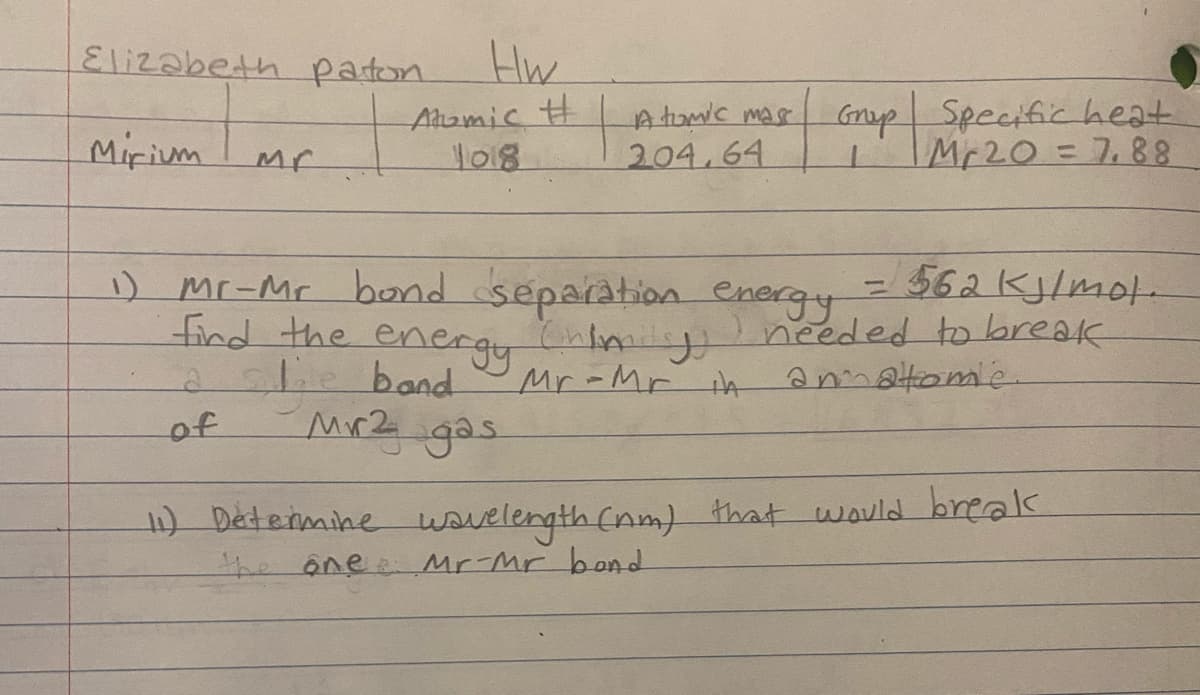 Elizabeth paton Hw
Atomic # Atomic mass Group Specific heat
Mirium mr 108 204.64 1 Mr20 = 7.88
1) Mr-Mr bond separation energy = 562 KJ/mol.
find the energy needed to break
a bond Mr-Mr in
of Mr2 gas
11) Determine wavelength (nm) that would break
the one Mr-Mr bond